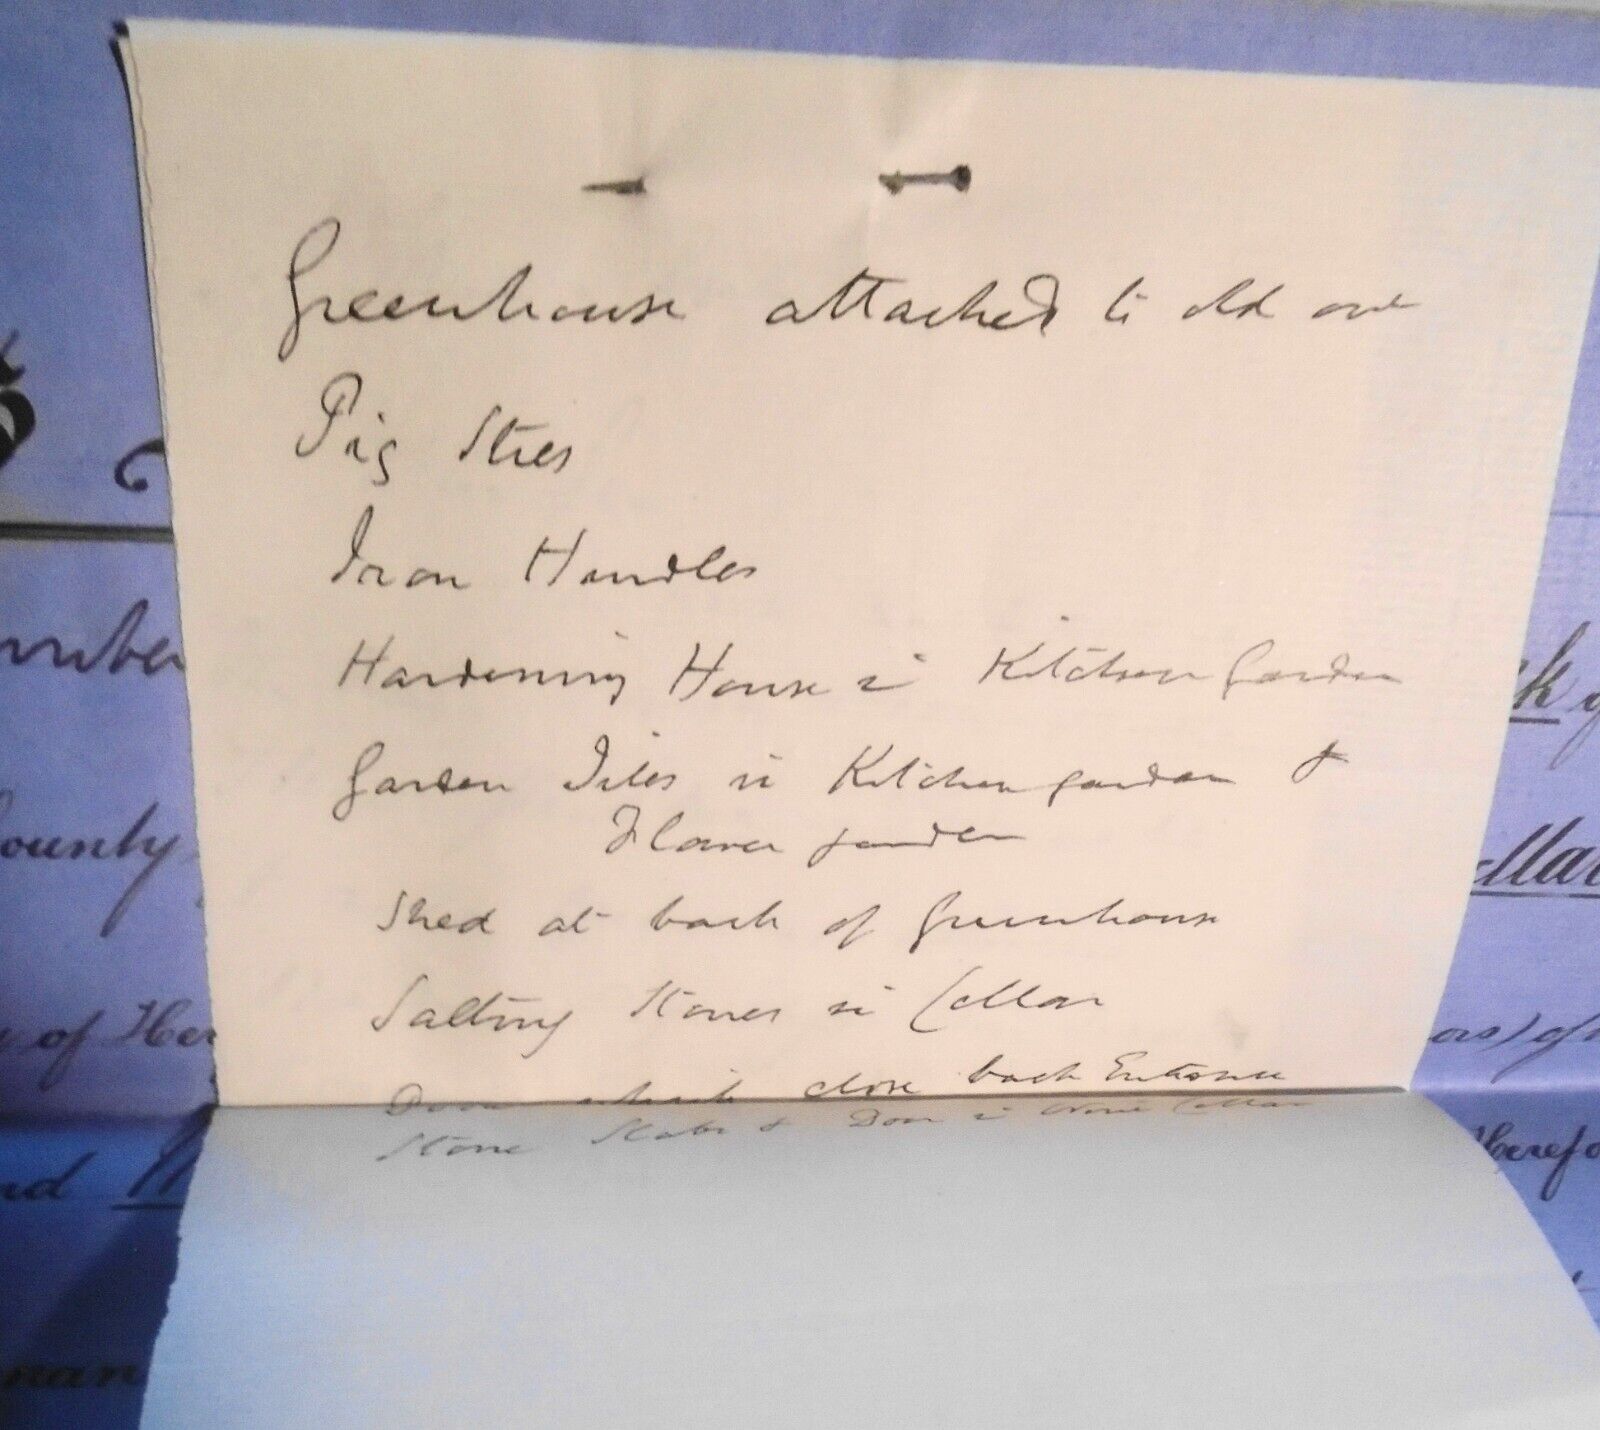 Greenhouse attached to old one
Pig Sties
Iron Hurdles
Hardening House in Kitchen Garden
Garden Tiles in Kitchen garden &
Flower garden
Shed at back of Greenhouse
Salting Stones in Cellar
Door which close back Entrance
Stone Slabs & Door in Wine Cellar
County
of Her